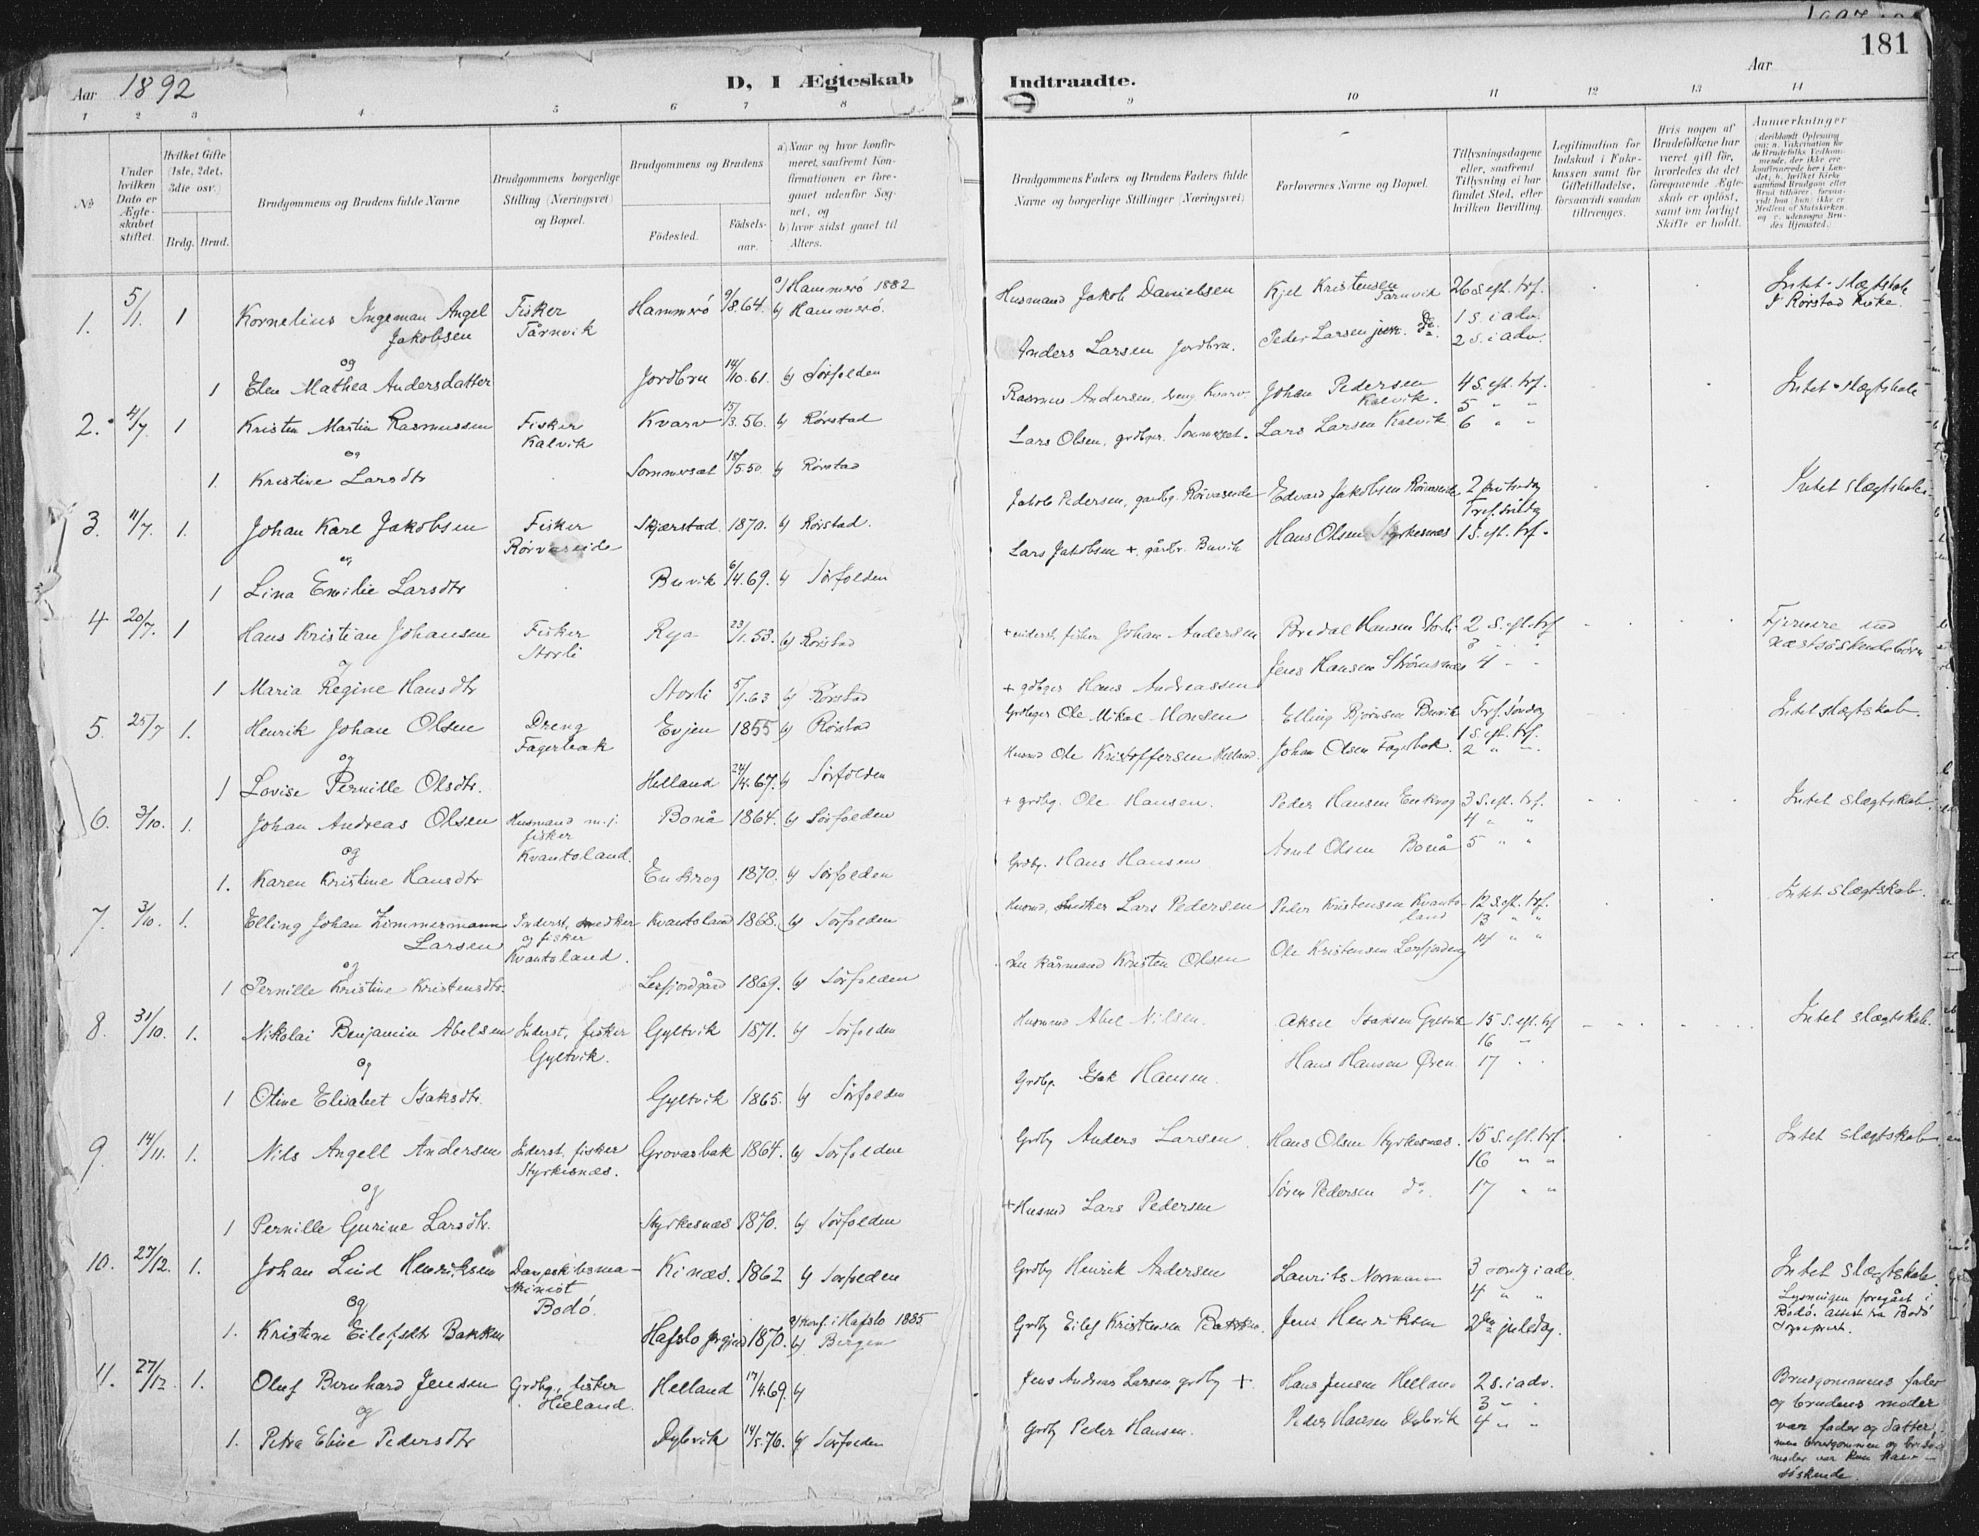 Aar 1892
D, I Ægteskab Indtraadte.
Aar
181
1 2 3 4 5 6 7 8 9 10 11 12 13 14
№
Under hvilken Dato er Ægteskabet stiftet.
Hvilket Gifte (1ste, 2det, 3die osv.)
Brdg. Brud.
Brudgommens og Brudens fulde Navne
Brudgommens borgerlige Stilling (Næringsvei) og Bopæl.
Brudgommens og Brudens
Fødested. Fødselsaar.
a) Naar og hvor konfirmeret, saafremt Konfirmationen er foregaaet udenfor Sognet, og
b) hvor sidst gaaet til Alters.
Brudgommens Faders og Brudens Faders fulde Navne og borgerlige Stillinger (Næringsvei)
Forlovernes Navne og Bopæl.
Tillysningsdagene eller, saafremt Tillysning ei har fundet Sted, efter hvilken Bevilling.
Legitimation for Indskud i Enkekassen samt for Giftetilladelse, forsaavidt saadan tiltrænges.
Hvis nogen af Brudefolkene har været gift før, hvorledes da det foregaaende Ægteskab er opløst, samt om lovligt Skifte er holdt.
Anmærkninger
1. 5/1. 1 Kornelius Ingeman Angel Jakobsen Fisker Tårnvik Hammerö 9/8.64. a) Hammerö 1882 b) Hammerö. Husmand Jakob Danielsen Kjel Kristensen Tårnvik 26 S. eft. trf. Intet slægtskab I Rørstad kirke.
og
1 Elen Mathea Andersdatter Jordbru 14/10.61. b) Sørfolden Anders Larsen Jordbru. Peder Larsen jun. do. 1 S. i adv. 2 S. i adv.
2. 4/7. 1 Kristen Martin Rasmussen Fisker Kalvik Kvarv 15/3.56. b) Rørstad Rasmus Andersen, Kvarv Johan Pedersen Kalvik. 4 S. eft. trf. 5 " " Intet slægtskab
og
1. Kristine Larsdtr Sommerset 18/5.50. b) Rørstad Lars Olsen, Sommerset. Lars Larsen Kalvik 6 " "
3. 11/7. 1. Johan Karl Jakobsen Fisker Rörvaseide Skjerstad 1870. b) Rørstad. Jakob Pedersen, Rörvaseide Edvard Jakobsen Rörvaseide 2 pintsedag Tref. Söndag Intet slægtskab.
og
1 Lina Emilie Larsdtr Buvik 6/4.69. b) Sørfolden Lars Jakobsen +, gårdbr. Buvik Hans Olsen Styrkesnæs 1 S. eft. trf.
4 20/7. 1 Hans Kristian Johansen Fisker Storli Rya 23/1.53. b) Rørstad + inderst, fisker Johan Andersen Bredal Hansen Storli 2 S. eft. trf. 3 " " Fjernere end næstsöskendebörn
og
1 Maria Regine Hansdtr Storli 5/1.63 b) Rørstad + Hans Andreassen Jens Hansen Strömsnæs 4 " "
5. 25/7 1. Henrik Johan Olsen Dreng Fagerbak Evjen 1855 b) Rørstad Ole Mikal Monsen Elling Bjørnsen Buvik Tref. Söndag Intet slægtskab.
og
1 Lovise Pernille Olsdtr. Helland 24/4.67. b) Sørfolden Husmd Ole Kristoffersen Helland. Johan Olsen Fagerbak. 1 S. eft. trf. 2 " "
6. 3/10. 1. Johan Andreas Olsen Husmand m. j. fisker Kvantoland. Bonå 1864. b) Sørfolden + grdbg. Ole Hansen. Peder Hansen Enkrog 3 S. eft. trf. 4 " " Intet slægtskab.
og
1. Karen Kristine Hansdtr Enkrog 1870. b) Sørfolden Grdbg. Hans Hansen Olsen Bonå 5 " "
7. 3/10. 1. Elling Johan Zimmermann Larsen Inderst, snedker og fisker Kvantoland. Kvantoland 1868. b) Sørfolden Husmd, snedker Lars Pedersen Peder Kristensen Kvantoland 12 S. eft. trf. 13 " " Intet slægtskab.
og
1 Pernille Kristine Kristensdtr. Leifjordgård 1869. b) Sørfolden Kårmand Kristen Olsen Ole Kristensen 14 " "
8. 31/10. 1. Nikolai Benjamin Abelsen Inderst, fisker Gyltvik. Gyltvik 1871. b) Sørfolden Husmand Abel Nilsen. Aksel Isaksen Gyltvik 15 S. eft. trf. 16 " Intet slægtskab.
og
1 Oline Elisabet Isaksdtr. Gyltvik 1865. b) Sørfolden Grdbg. Isak Hansen. Hans Hansen Øren 17 " "
9. 14/11. 1. Nils Angell Andersen Inderst, fisker Styrkesnæs. Grovasbak 1864. b) Sørfolden Grdbg Anders Larsen. Hans Olsen Styrkesnæs. 15 S. eft. trf. 16 " " Intet slægtskab
og
1 Pernille Gurine Larsdtr. Styrkesnæs 1870. b) Sørfolden + Husmd Lars Pedersen Sören Pedersen do. 17 " "
10. 27/12. 1. Johan Lind Henriksen Dampskibsmaskinist Bodö. Kinæs. 1862 b) Sørfolden Grdbg Henrik Andersen Laurits Normann 3 söndg i adv. 4 " " Intet slægtskab. Lysningen foregået i Bodö. Attest fra Bodö Sogneprest.
og
1. Kristine Eilefsdtr Bakken Hafslo prgjeld 1870. a) konf. i Hafslo 1885 b) Bergen Grdbg Eilef Kristensen Bakken. Jens Henriksen 2den juledag.
11. 27/12 1. Oluf Bernhard Jensen Grdbg., fisker Helland. Helland 17/4.69. b) Jens Andreas Larsen grdbg + Hans Jensen Helland 2 S. i adv. 3 " " Brudgommens fader og brudens moder var fader og datter, men brudgommen og brudens moder var kun halvsöskende.
og
1. Petra Eline Pedersdtr Dybvik 14/5.76. b) Sørfolden Grdbg Peder Hansen. Peder Hansen Dybvik 4 " "